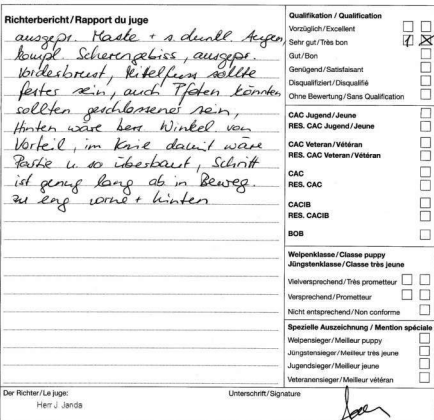 Richterbericht / Rapport du juge
ausgepr. Maske + s. dunkle Augen,
kompl. Scherengebiss, ausgepr.
Vorderbrust, Mittelfuss sollte
fester sein, auch Pfoten könnten
sollten geschlossener sein,
Hinten wäre bess Winkel von
Vorteil, im Knie damit wäre
Partie u. so überbaut, Schritt
ist genug lang ab in Beweg.
zu eng vorne + hinten
Der Richter / Le juge:
Herr J. Janda
Unterschrift / Signature
Qualifikation / Qualification
Vorzüglich / Excellent
Sehr gut / Très bon
Gut / Bon
Genügend / Satisfaisant
Disqualifiziert / Disqualifié
Ohne Bewertung / Sans Qualification
CAC Jugend / Jeune
RES. CAC Jugend / Jeune
CAC Veteran / Vétéran
RES. CAC Veteran / Vétéran
CAC
RES. CAC
CACIB
RES. CACIB
BOB
Welpenklasse / Classe puppy
Jüngstenklasse / Classe très jeune
Vielversprechend / Très prometteur
Versprechend / Prometteur
Nicht entsprechend / Non conforme
Spezielle Auszeichnung / Mention spéciale
Welpensieger / Meilleur puppy
Jüngstensieger / Meilleur très jeune
Jugendsieger / Meilleur jeune
Veteranensieger / Meilleur vétéran